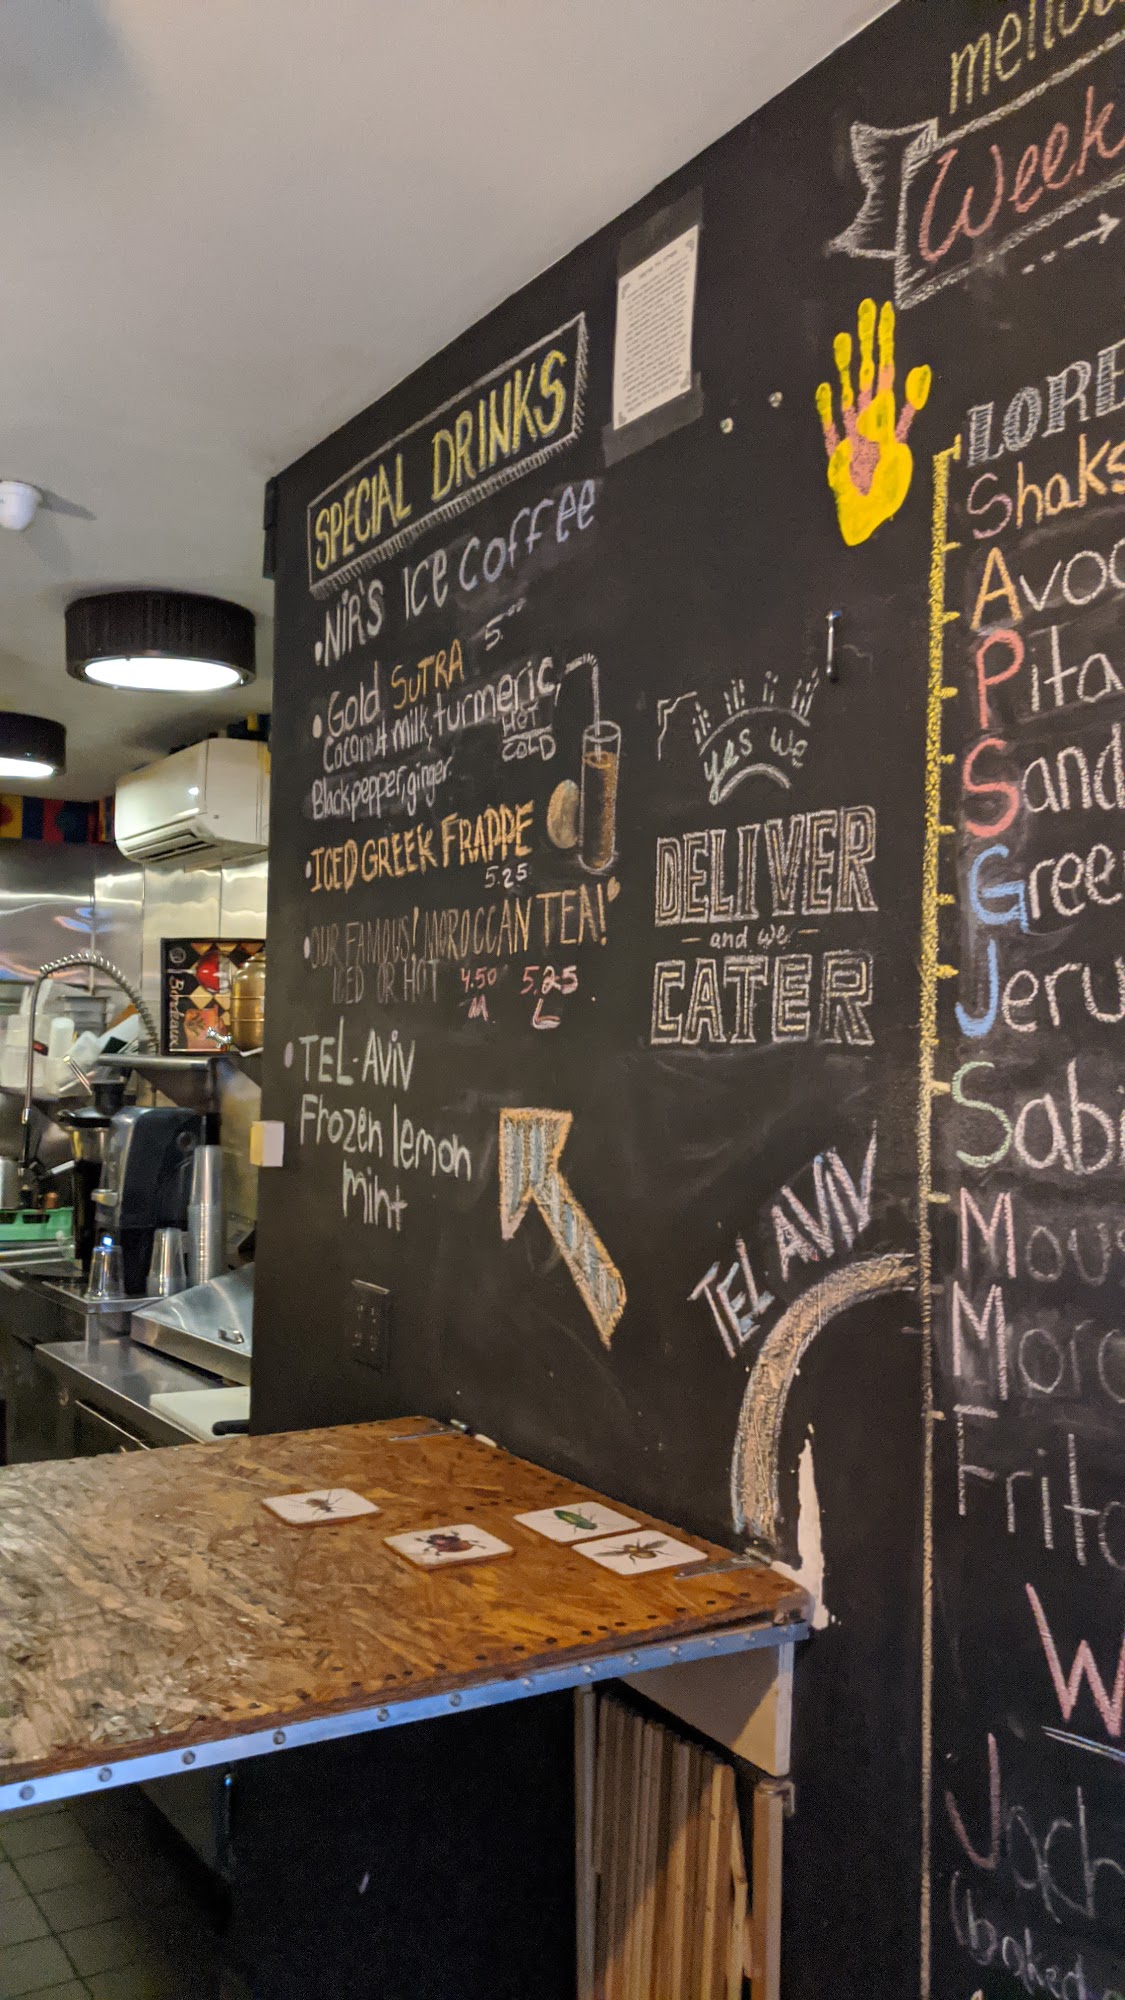 SPECIAL DRINKS
• NiR'S ICE COFFEE
5.00
• Gold SUTRA
Coconut milk, turmeric,
HOT
COLD
Black pepper, ginger.
• ICED GREEK FRAPPE
5.25
• OUR FAMOUS! MOROCCAN TEA!
ICED OR HOT 4.50 5.25
M L
• TEL-AViV
Frozen lemon
mint
yes we
DELIVER
- and we -
CATER
TEL AVIV
Week
LORE
Shaks
Avoc
Pita
Sand
Gree
Jeru
Sabi
Mous
Moro
Frito
W
Jach
(baked
Bordeaux